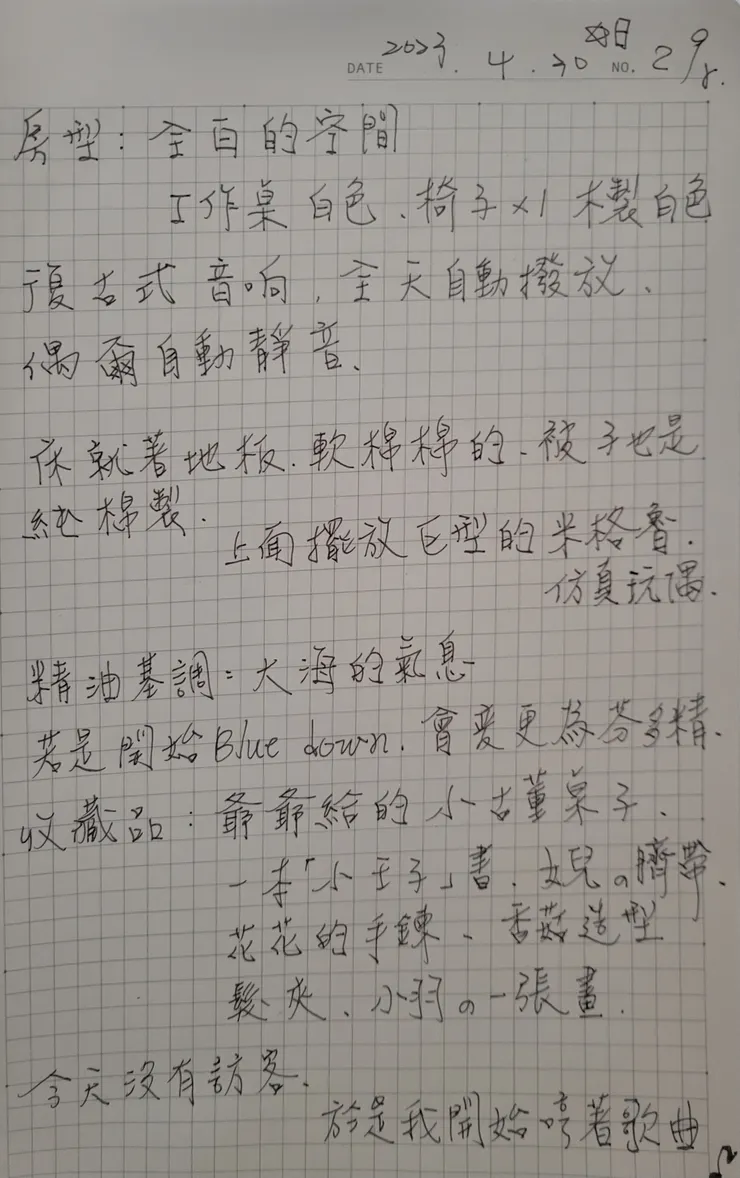 DATE 2023. 4. 30 日 NO. 29
房型：全白的空間
工作桌白色、椅子×1 木製白色
復古式音响，全天自動撥放、
偶爾自動靜音、
床就著地板、軟棉棉的、被子也是
純棉製．
上面擺放巨型的米格魯．
仿真玩偶．
精油基調：大海的氣息
若是開始Blue down．會變更為芬多精．
收藏品：爺爺給的小古董桌子、
一本「小王子」書．女兒の臍帶、
花花的手鍊、香菇造型
髮夾、小羽の一張畫．
今天沒有訪客．
於是我開始哼著歌曲